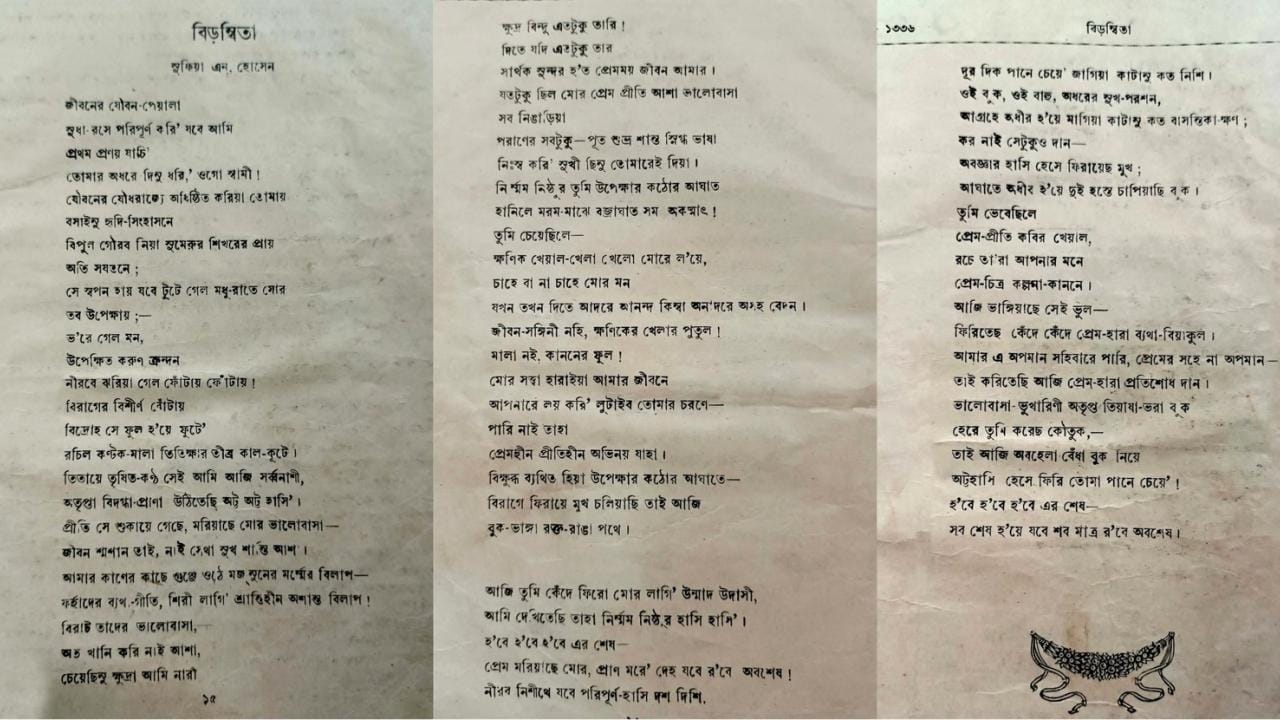 বিড়ম্বিতা
সুফিয়া এন্, হোসেন
জীবনের যৌবন-পেয়ালা
সুধা-রসে পরিপূর্ণ করি' যবে আমি
প্রথম প্রণয় যাচি'
তোমার অধরে দিনু ধরি,' ওগো স্বামী !
যৌবনের যৌবরাজ্যে অধিষ্ঠিত করিয়া তোমায়
বসাইনু হৃদি-সিংহাসনে
বিপুল গৌরব নিয়া সুমেরুর শিখরের প্রায়
অতি সযতনে ;
সে স্বপন হায় যবে টুটে গেল মধু-রাতে মোর
তব উপেক্ষায় ;—
ভ'রে গেল মন,
উপেক্ষিত করুণ ক্রন্দন
নীরবে ঝরিয়া গেল ফোঁটায় ফোঁটায় !
বিরাগের বিশীর্ণ বোঁটায়
বিদ্রোহ সে ফুল হ'য়ে ফুটে'
রচিল কণ্টক-মালা তিতিক্ষার তীব্র কাল-কূটে ।
তিতায়ে তৃষিত-কণ্ঠ সেই আমি আজি সর্ব্বনাশী,
অতৃপ্তা বিদগ্ধা-প্রাণা উঠিতেছি অট্ট অট্ট হাসি' ।
প্রীতি সে শুকায়ে গেছে, মরিয়াছে মোর ভালোবাসা—
জীবন শ্মশান তাই, নাই সেথা সুখ শান্তি আশা ।
আমার কাণের কাছে গুঞ্জে ওঠে মজনুনের মর্ম্মের বিলাপ—
ফর্হাদের ব্যথা-গীতি, শিরী লাগি' শ্রান্তিহীন অশান্ত বিলাপ !
বিরাট তাদের ভালোবাসা,—
অত খানি করি নাই আশা,
চেয়েছিনু ক্ষুদ্রা আমি নারী
১৫
ক্ষুদ্র বিন্দু এতটুকু তারি !
দিতে যদি এতটুকু তার
সার্থক সুন্দর হ'ত প্রেমময় জীবন আমার ।
যতটুকু ছিল মোর প্রেম প্রীতি আশা ভালোবাসা
সব নিঙাড়িয়া
পরাণের সবটুকু—পূত শুভ্র শান্ত স্নিগ্ধ ভাষা
নিঃস্ব করি' সুখী ছিনু তোমারেই দিয়া ।
নির্ম্মম নিষ্ঠুর তুমি উপেক্ষার কঠোর আঘাত
হানিলে মরম-মাঝে বজ্রাঘাত সম অকস্মাৎ !
তুমি চেয়েছিলে—
ক্ষণিক খেয়াল-খেলা খেলো মোরে ল'য়ে,
চাহে বা না চাহে মোর মন
যখন তখন দিতে আদরে আনন্দ কিম্বা অনাদরে অসহ বেদন ।
জীবন-সঙ্গিনী নহি, ক্ষণিকের খেলার পুতুল !
মালা নই, কাননের ফুল !
মোর সত্বা হারাইয়া আমার জীবনে
আপনারে লয় করি' লুটাইব তোমার চরণে—
পারি নাই তাহা
প্রেমহীন প্রীতিহীন অভিনয় যাহা ।
বিক্ষুব্ধ ব্যথিত হিয়া উপেক্ষার কঠোর আঘাতে—
বিরাগে ফিরায়ে মুখ চলিয়াছি তাই আজি
বুক-ভাঙ্গা রক্ত-রাঙা পথে ।
আজি তুমি কেঁদে ফিরো মোর লাগি' উন্মাদ উদাসী,
আমি দেখিতেছি তাহা নির্ম্মম নিষ্ঠুর হাসি হাসি' ।
হ'বে হ'বে হ'বে এর শেষ—
প্রেম মরিয়াছে মোর, প্রাণ মরে' দেহ যবে র'বে অবশেষ !
নীরব নিশীথে যবে পরিপূর্ণ-হাসি দশ দিশি,
১৩৩৬
বিড়ম্বিতা
দূর দিক পানে চেয়ে' জাগিয়া কাটানু কত নিশি ।
ওই বুক, ওই বাহু, অধরের সুখ-পরশন,
আগ্রহে অধীর হ'য়ে মাগিয়া কাটানু কত বাসন্তিকা-ক্ষণ ;
কর নাই সেটুকুও দান—
অবজ্ঞার হাসি হেসে ফিরায়েছ মুখ ;
আঘাতে অধীর হ'য়ে দুই হস্তে চাপিয়াছি বুক ।
তুমি ভেবেছিলে
প্রেম-প্রীতি কবির খেয়াল,
রচে তা'রা আপনার মনে
প্রেম-চিত্র কল্পনা-কাননে ।
আজি ভাঙ্গিয়াছে সেই ভুল—
ফিরিতেছ কেঁদে কেঁদে প্রেম-হারা ব্যথা-বিয়াকুল ।
আমার এ অপমান সহিবারে পারি, প্রেমের সহে না অপমান—
তাই করিতেছি আজি প্রেম-হারা প্রতিশোধ দান ।
ভালোবাসা-ভুখারিণী অতৃপ্ত তিয়াষা-ভরা বুক
হেরে তুমি করেছ কৌতুক,—
তাই আজি অবহেলা বেঁধা বুক নিয়ে
অট্টহাসি হেসে ফিরি তোমা পানে চেয়ে' !
হ'বে হ'বে হ'বে এর শেষ—
সব শেষ হ'য়ে যবে শব মাত্র র'বে অবশেষ ।